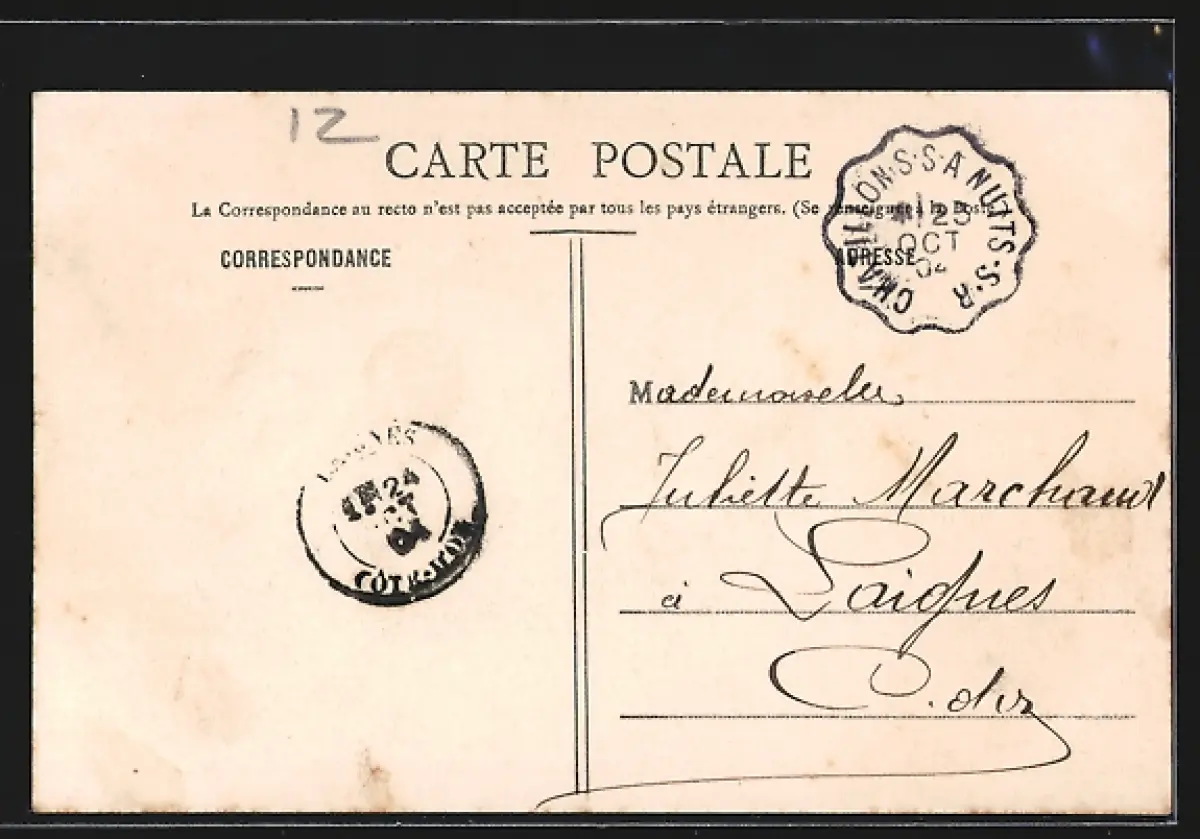 12
CARTE POSTALE
La Correspondance au recto n'est pas acceptée par tous les pays étrangers. (Se renseigner à la Poste
CORRESPONDANCE
ADRESSE
CHATILLON·S·S·A NUITS·S·R
23
OCT
04
Mademoiselle,
Juliette Marchand
à Laignes
C. d'or
LAIGNES
24
04
COTE-D'OR